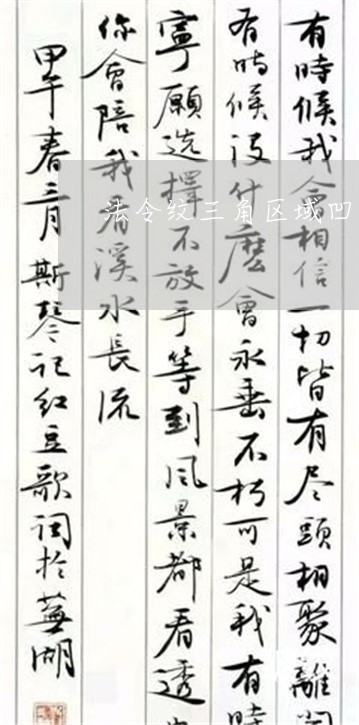 有時候我会相信一切皆有尽頭相聚離開
有時候没什麼會永垂不朽可是我有時
寧願选擇不放手等到风景都看透
你會陪我看溪水長流
甲午春三月斯琴记红豆歌词於蕪湖
法令纹三角区域凹